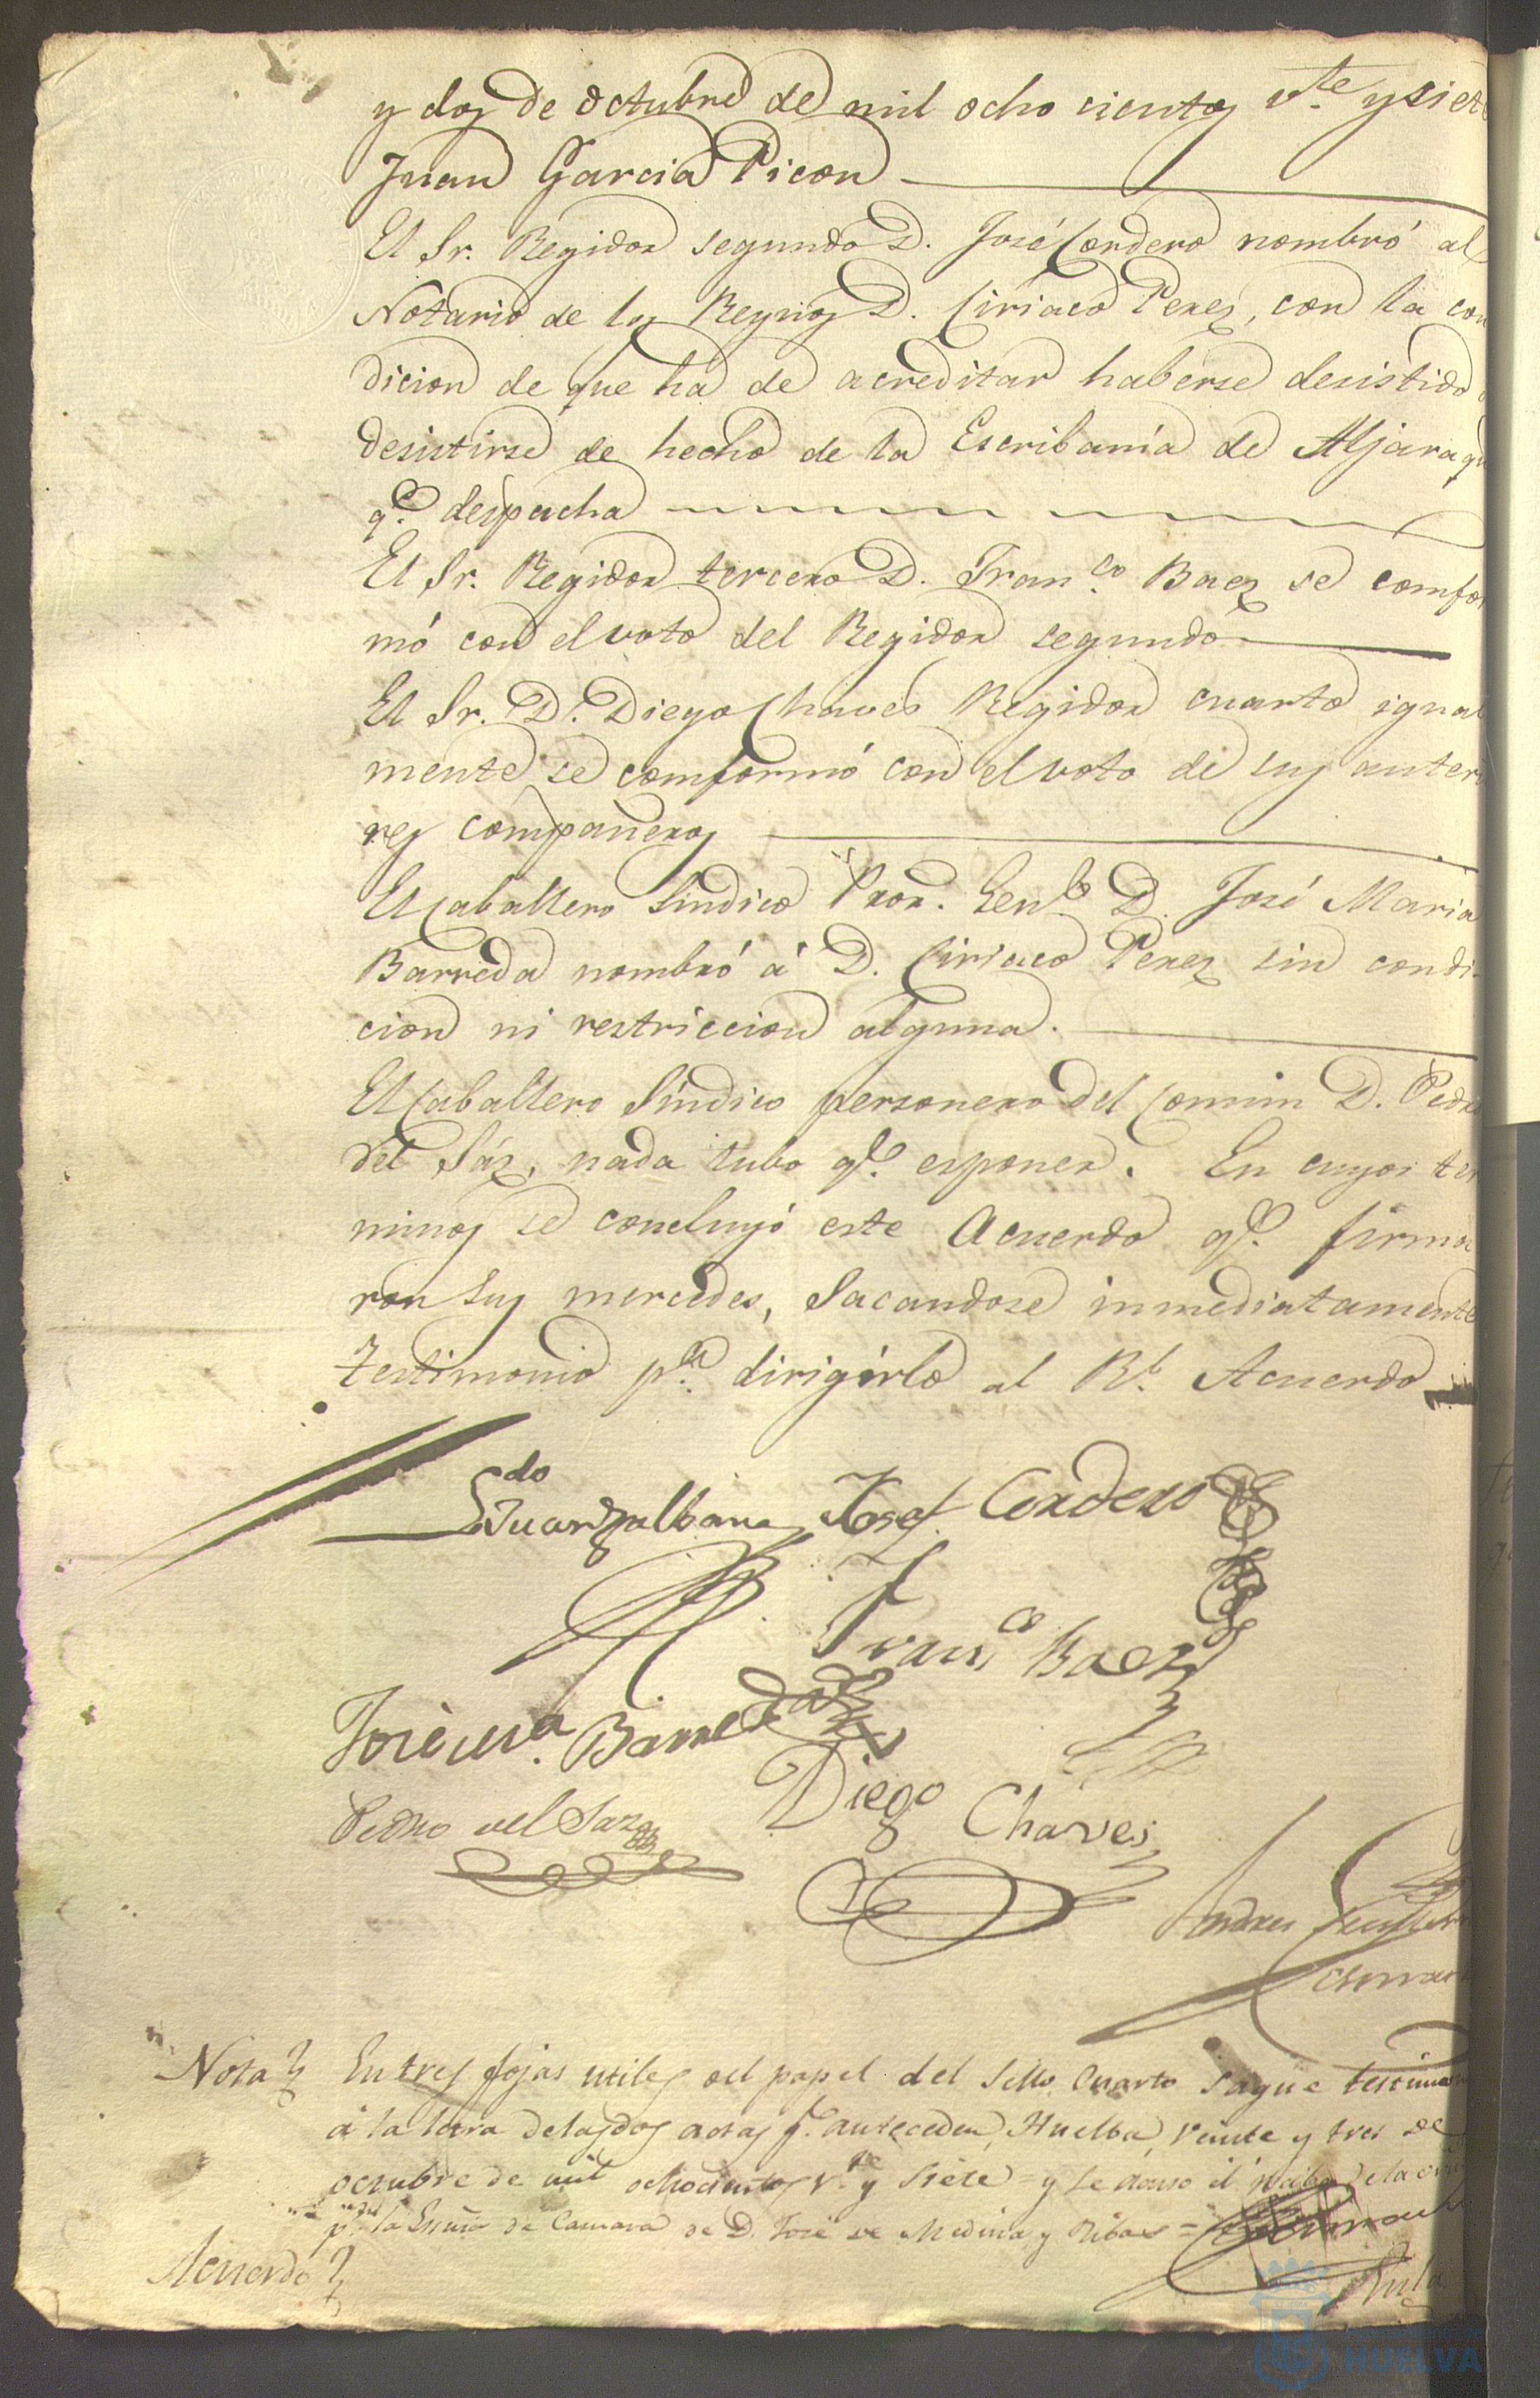 y dos de octubre de mil ocho cientos vte. y siete
Juan Garcia Picon
El Sr. Regidor segundo D. José Cordero nombró al
Notario de los Reynos D. Ciriaco Perez, con la con
dicion de que ha de acreditar haberse desistido
desistirse de hecho de la Escribanía de Aljaraque
qe. despacha
El Sr. Regidor tercero D. Franco. Baez se comfor
mó con el voto del Regidor segundo
El Sr. D. Diego Chaves Regidor cuarto igual
mente se comformó con el voto de sus anterio
res compañeros
El Caballero Sindico Pror. Genl. D. José Maria
Barreda nombró á D. Ciriaco Perez sin condi
cion ni restriccion alguna.
El Caballero Síndico personero del Comun D. Pedro
del Sáz, nada tubo qe. esponer. En cuyos ter
minos se concluyó este Acuerdo qe. firma
ron sus mercedes, Sacandose inmediatamente
testimonio pa. dirigirlo al Rl. Acuerdo
Ldo
Josef Cordero
Franco Baez
José Ma. Barreda
Diego Chaves
Pedro del Saz
Andres
Nota En tres fojas utiles del papel del Sello Cuarto saque testimonio
á la letra de las dos actas qe. anteceden, Huelba, veinte y tres de
octubre de mil ochocientos vte. y siete = y se
pr. la Essnia de Camara de D. José de Medina y Ribas =
Acuerdo
HUELVA